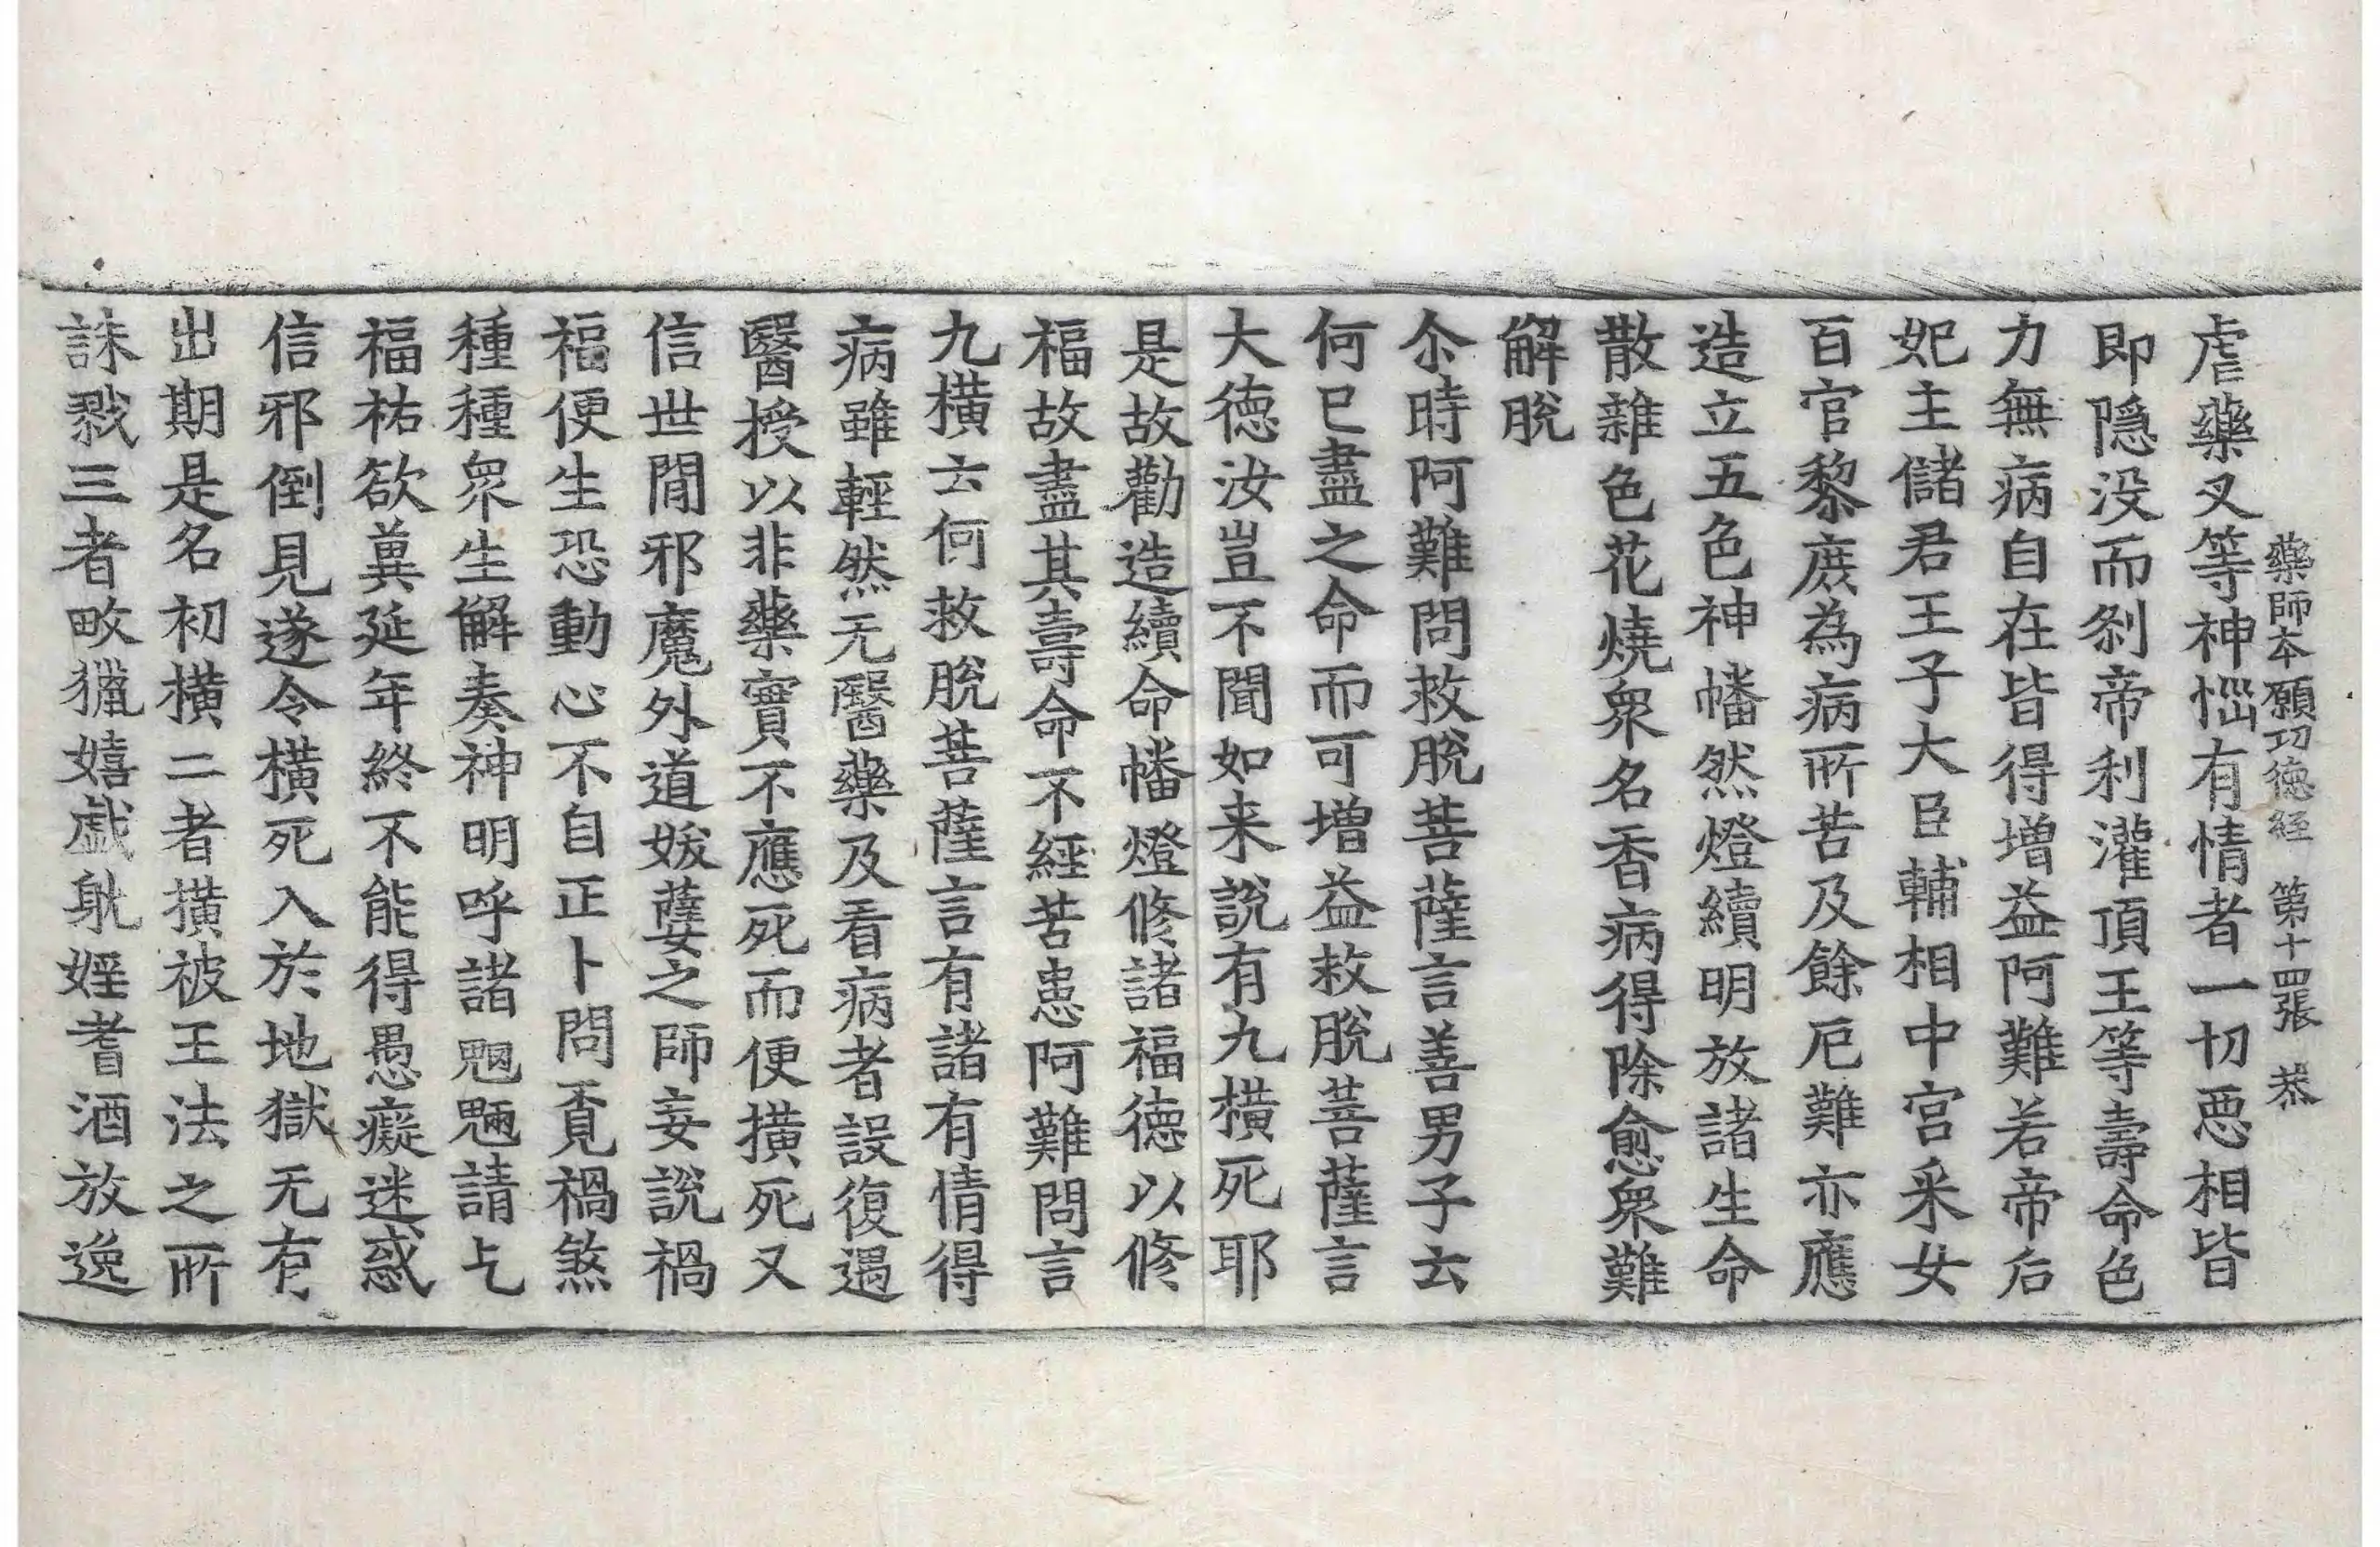 藥師本願功德経 第十四張 恭
虐藥叉等神惱有情者一切惡相皆
即隱没而剎帝利灌頂王等壽命色
力無病自在皆得增益阿難若帝后
妃主儲君王子大臣輔相中宮采女
百官黎庶為病所苦及餘厄難亦應
造立五色神幡然燈續明放諸生命
散雜色花燒衆名香病得除愈衆難
解脫
尒時阿難問救脫菩薩言善男子云
何已盡之命而可增益救脫菩薩言
大德汝豈不聞如来說有九橫死耶
是故勸造續命幡燈修諸福德以修
福故盡其壽命不經苦患阿難問言
九橫云何救脫菩薩言有諸有情得
病雖輕然无醫藥及看病者設復遇
醫授以非藥實不應死而便橫死又
信世間邪魔外道妖㜸之師妄說禍
福便生恐動心不自正卜問覓禍煞
種種衆生解奏神明呼諸魍魎請乞
福祐欲兾延年終不能得愚癡迷惑
信邪倒見遂令橫死入於地獄无有
出期是名初橫二者橫被王法之所
誅戮三者畋獵嬉戲躭婬耆酒放逸